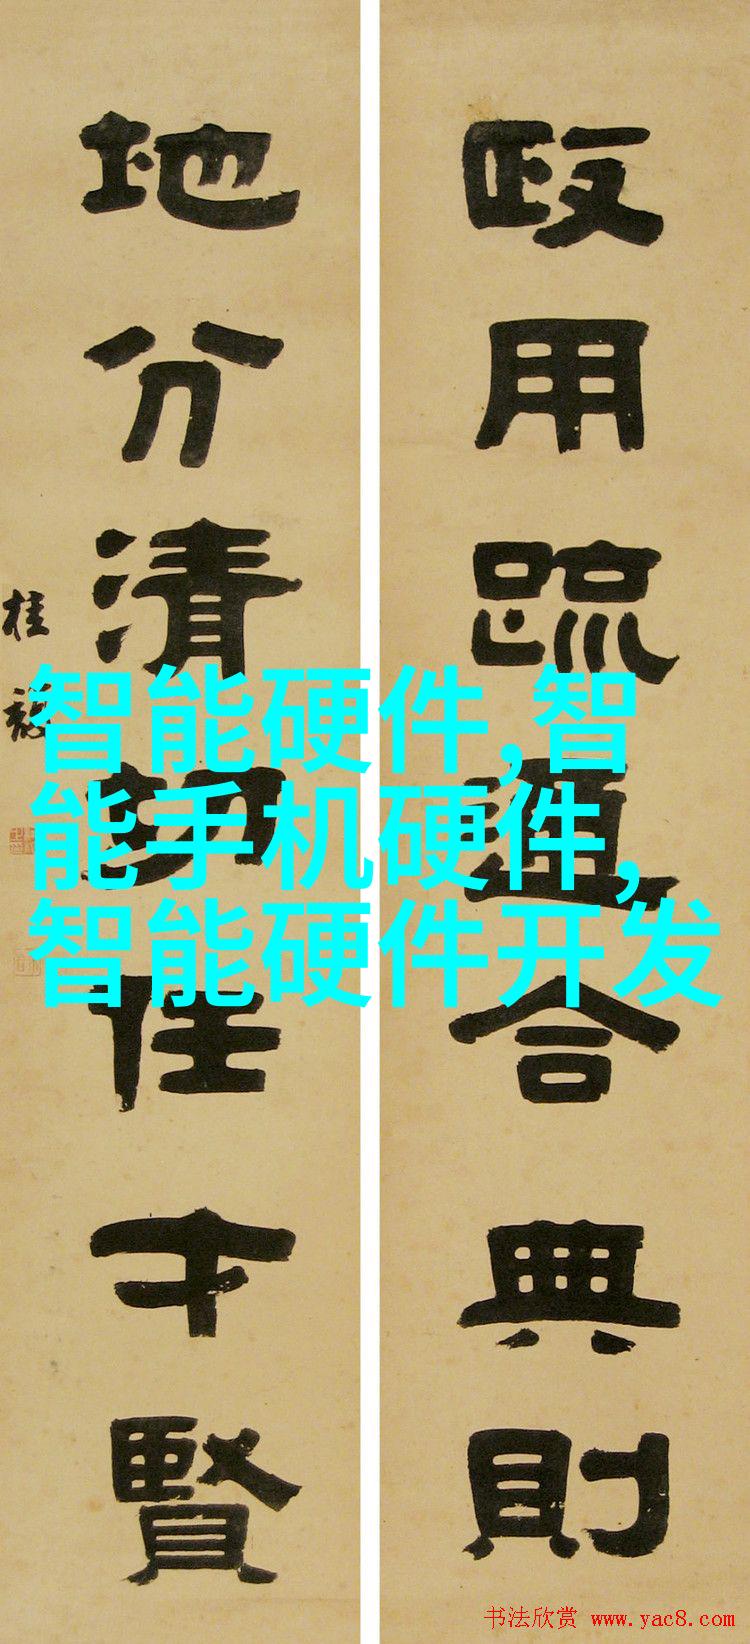 政用疏通合典則
地分清切任才賢
桂馥
智能硬件,智
能手机硬件,
智能硬件开发
书法欣赏 www.yac8.com